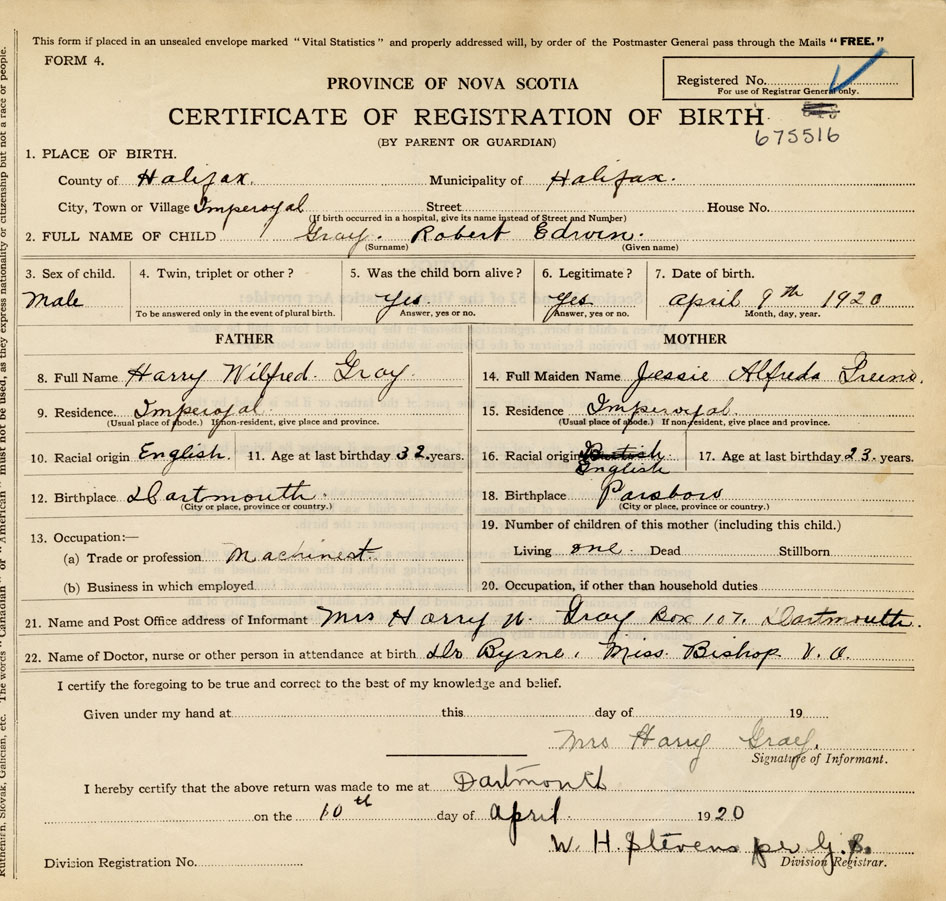 This form if placed in an unsealed envelope marked "Vital Statistics" and properly addressed will, by order of the Postmaster General pass through the Mails "FREE."
FORM 4.
Registered No.
For use of Registrar General only.
PROVINCE OF NOVA SCOTIA
CERTIFICATE OF REGISTRATION OF BIRTH
675516
(BY PARENT OR GUARDIAN)
1. PLACE OF BIRTH.
County of Halifax. Municipality of Halifax.
City, Town or Village Imperoyal Street House No.
(If birth occurred in a hospital, give its name instead of Street and Number)
2. FULL NAME OF CHILD Gray. Robert Edwin.
(Surname) (Given name)
3. Sex of child. 4. Twin, triplet or other? 5. Was the child born alive? 6. Legitimate? 7. Date of birth.
Male Yes Yes April 9th 1920
To be answered only in the event of plural birth. Answer, yes or no. Answer, yes or no. Month, day, year.
FATHER MOTHER
8. Full Name Harry Wilfred. Gray. 14. Full Maiden Name Jessie Alfreda
9. Residence Imperoyal. 15. Residence Imperoyal.
(Usual place of abode.) If non-resident, give place and province. (Usual place of abode.) If non-resident, give place and province.
10. Racial origin English. 11. Age at last birthday 32. years. 16. Racial origin British English 17. Age at last birthday 23. years.
12. Birthplace Dartmouth. 18. Birthplace Parsboro
(City or place, province or country.) (City or place, province or country.)
13. Occupation:— 19. Number of children of this mother (including this child.)
(a) Trade or profession Machinest. Living one. Dead Stillborn
(b) Business in which employed 20. Occupation, if other than household duties
21. Name and Post Office address of Informant Mrs Harry W. Gray Box 107. Dartmouth.
22. Name of Doctor, nurse or other person in attendance at birth Dr Byrne, Miss. Bishop V. O.
I certify the foregoing to be true and correct to the best of my knowledge and belief.
Given under my hand at this day of 19
Mrs Harry Gray.
Signature of Informant.
I hereby certify that the above return was made to me at Dartmouth
on the 10th day of April 1920
W. H. Stevens per G. B.
Division Registrar.
Division Registration No.
Ruthenian, Slovak, Galician, etc. The words "Canadian" or "American" must not be used, as they express nationality or citizenship but not a race or people.